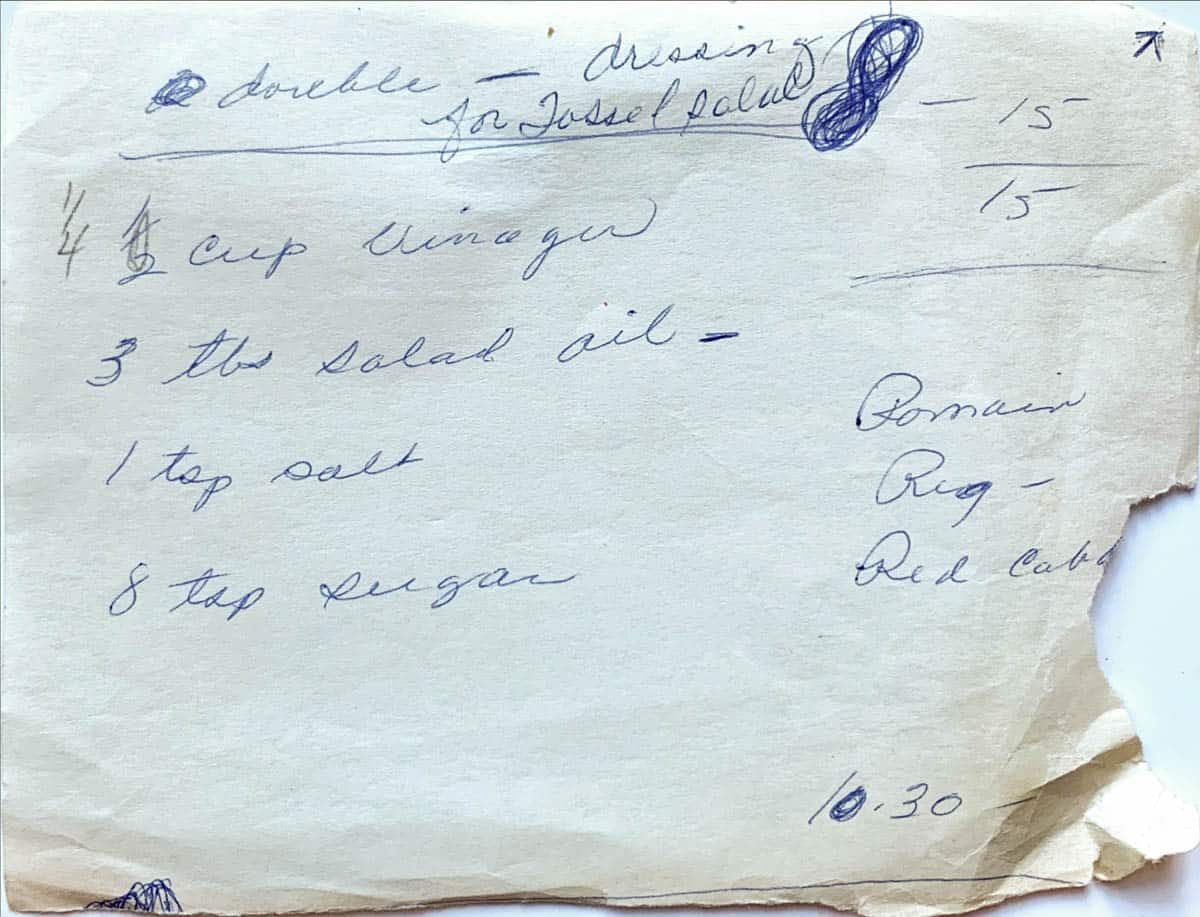 double — dressing
for Tossel Salad
- 15
15
1/4 1/2 cup Vinager
3 tbs salad oil -
1 tsp salt
8 tsp sugar
Romain
Reg -
Red Cabb
10.30 -